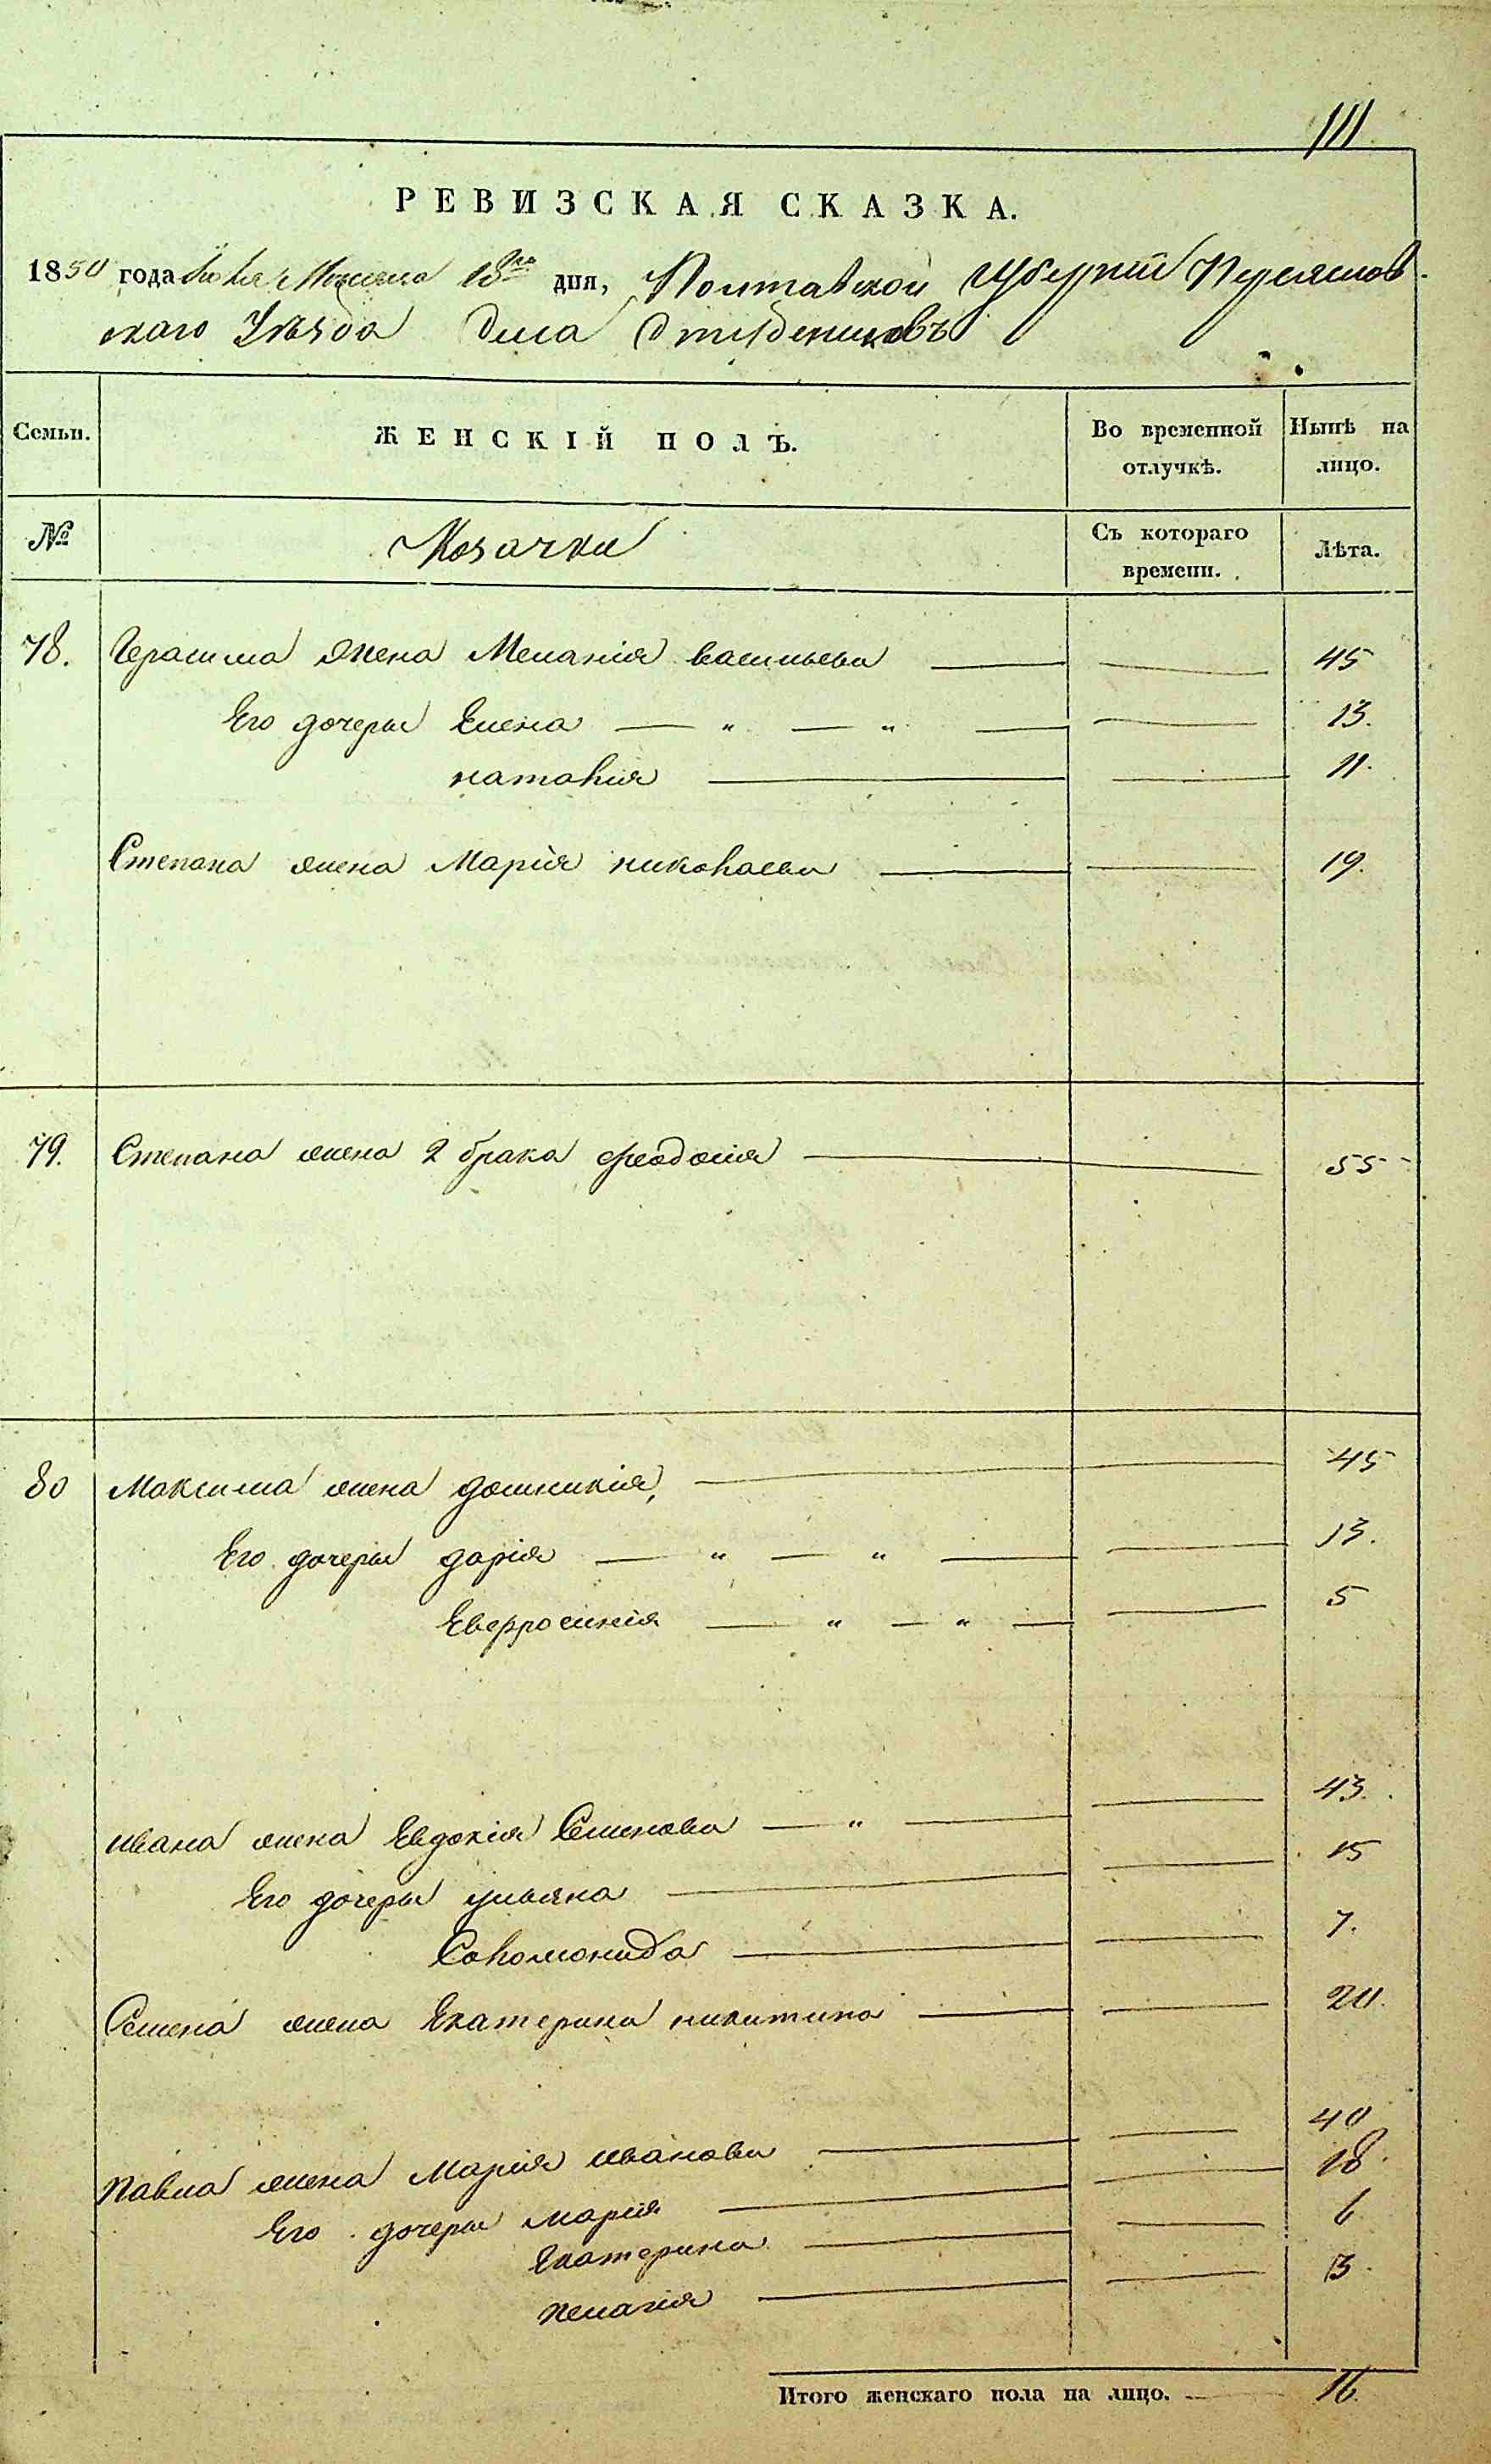 111
РЕВИЗСКАЯ СКАЗКА.
1850 года Месяца 18го дня, Полтавской Губерніи Переяслов-
скаго Уѣзда Села Студениковъ
Семьи.
ЖЕНСКІЙ ПОЛЪ.
Во временной отлучкѣ.
Нынѣ на лицо.
№
Козачки
Съ котораго времени.
Лѣта.
78. Герасима жена Меланія васильева 45
Его дочеры Елена — " — " 13.
наталія 11.
Степана жена Марія николаева 19.
79. Степана жена 2 брака феодосія 55
80 Максима жена домникія, 45
Его дочеры дарія — " — " 13.
Евфросинія — " — " 5
ивана жена Евдокія Семенова — " 43.
Его дочеры ульяна 15
Соломонида 7.
Семена жена Екатерина никитина 20.
павла жена Марія иванова 40
Его дочеры марія 18.
Екатерина 6
пелагія 13.
Итого женскаго пола на лицо. 16.